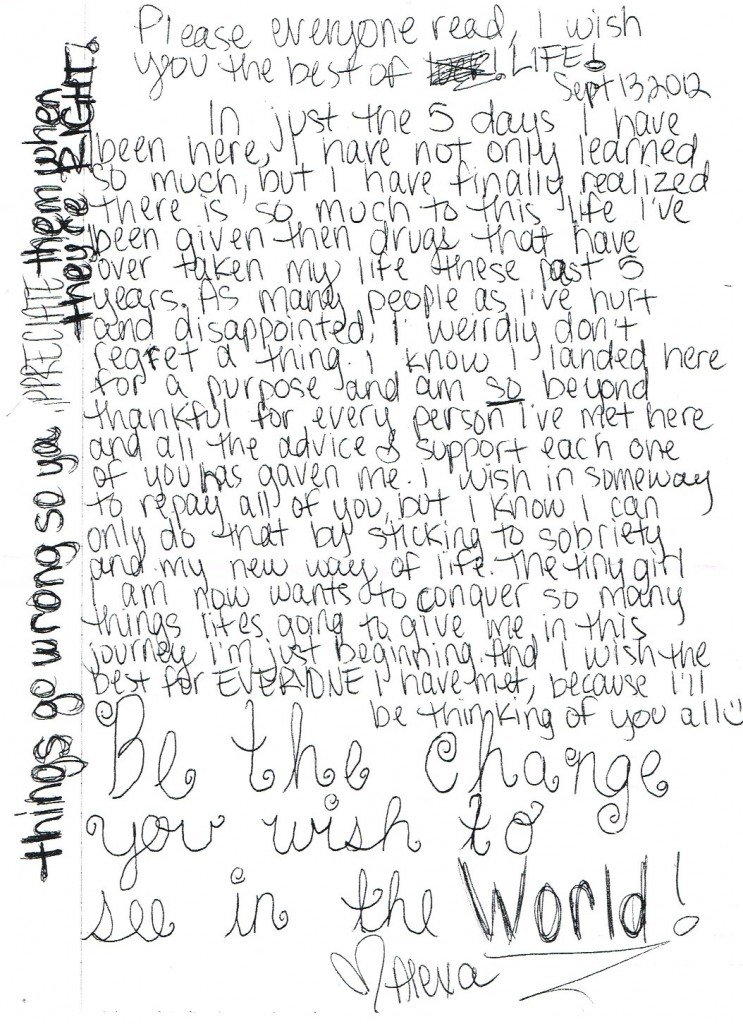 Please everyone read, I wish
you the best of LIFE!
Sept 13, 2012
In just the 5 days I have
been here, I have not only learned
so much, but I have finally realized
there is so much to this life I've
been given then drugs that have
over taken my life these past 5
years. As many people as I've hurt
and disappointed, I weirdly don't
regret a thing. I know I landed here
for a purpose and am so beyond
thankful for every person I've met here
and all the advice & support each one
of you has gaven me. I wish in someway
to repay all of you, but I know I can
only do that by sticking to sobriety
and my new way of life. The tiny girl
I am now wants to conquer so many
things lifes gong to give me in this
journey I'm just beginning. And I wish the
best for EVERYONE I have met, because I'll
be thinking of you all
Be the change
you wish to
see in the World!
Alexa
things go wrong so ya APPRECIATE them when
they're RIGHT.